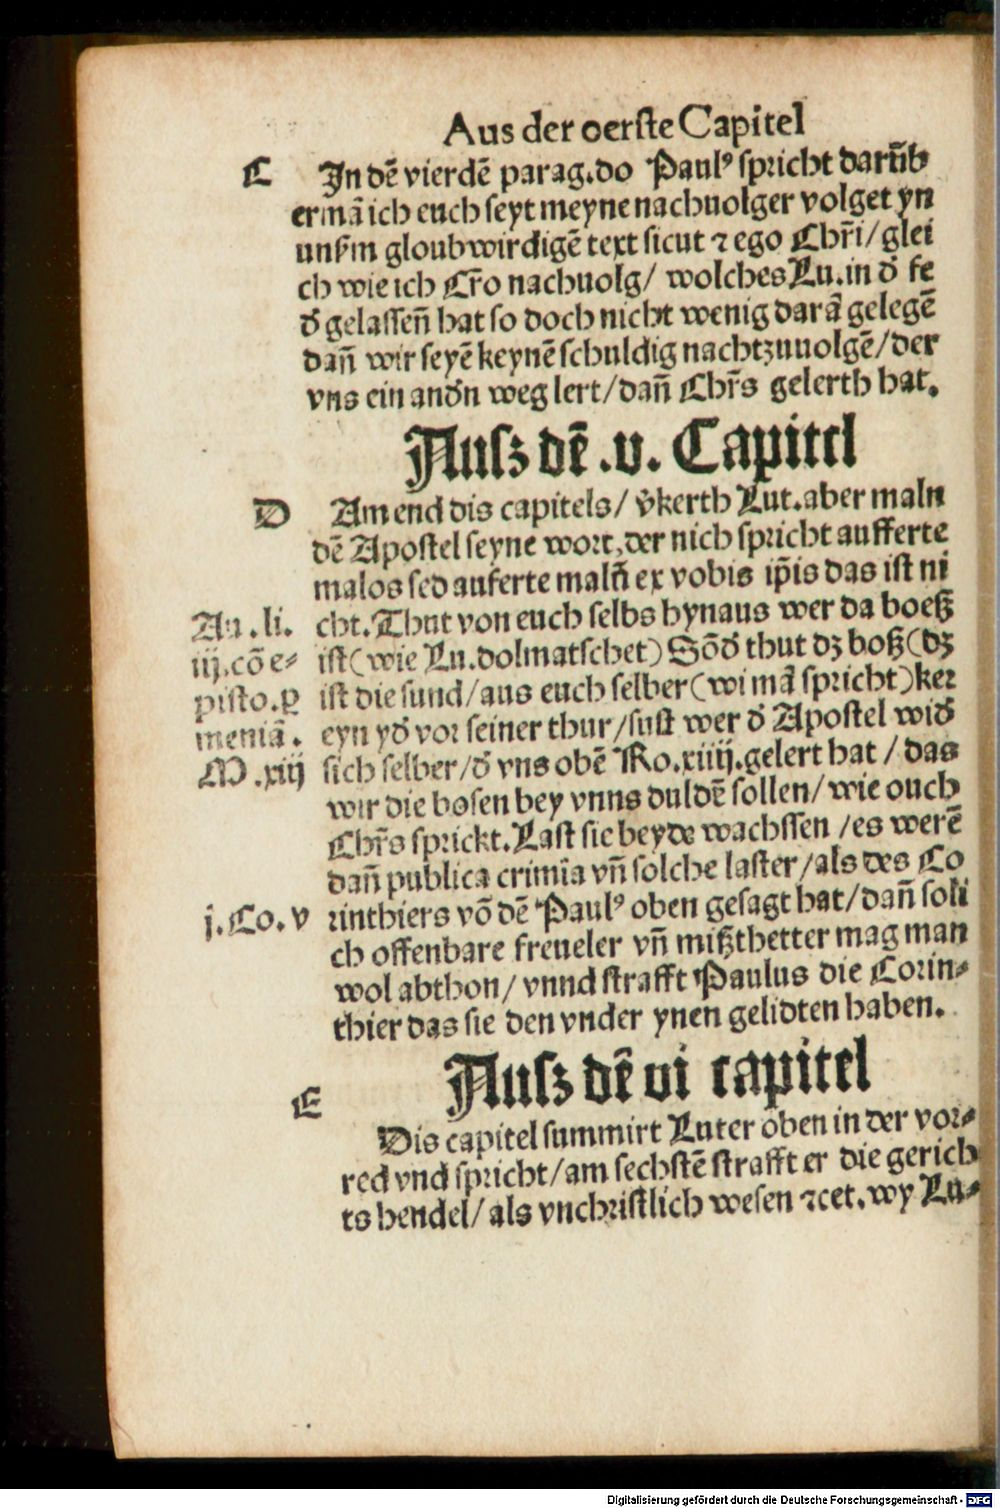 Aus der oerste Capitel
C
Jn dē vierdē parag.do Paulꝰ spricht darūb
ermā ich euch seyt meyne nachuolger volget yn
unẜm gloubwirdigē text sicut ⁊ ego Chr̄i/glei
ch wie ich Cr̄o nachuolg/ wolches Lu.in d̄ fe
d̄ gelassen̄ hat so doch nicht wenig darā gelegē
dan̄ wir seyē keynē schuldig nachtzuuolgē/der
vns ein and̄n weg lert/dan̄ Chr̄s gelerth hat.
Ausz dē .v. Capitel
D
Am end dis capitels/ v̄kerth Lut.aber maln
dē Apostel seyne wort,der nich spricht aufferte
malos sed auferte malū ex vobis ip̄is das ist ni
Au.li.
cht.Thut von euch selbs hynaus wer da boeß
iij.cō e⸗
ist(wie Lu.dolmatschet)Sōd̄ thut dz boß(dz
pisto.ꝑ
ist die sund/aus euch selber(wi mā spricht)ker
meniā.
eyn yd̄ vor seiner thur/sust wer d̄ Apostel wid̄
M.xiij
sich selber/d̄ vns obē Ro.xiiij.gelert hat / das
wir die bosen bey vnns duldē sollen/ wie ouch
Chr̄s sprickt.Last sie beyde wachssen /es werē
dan̄ publica crimīa vn̄ solche laster/als des Co
j.Co.v
rinthiers vō dē Paulꝰ oben gesagt hat/dan̄ soli
ch offenbare freueler vn̄ mißthetter mag man
wol abthon/ vnnd strafft Paulus die Corin⸗
thier das sie den vnder ynen gelidten haben.
Ausz dē vi capitel
E
Dis capitel summirt Luter oben in der vor⸗
red vnd spricht/am sechstē strafft er die gerich
ts hendel/als vnchristlich wesen ⁊cet.wy Lu⸗
Digitalisierung gefördert durch die Deutsche Forschungsgemeinschaft - DFG